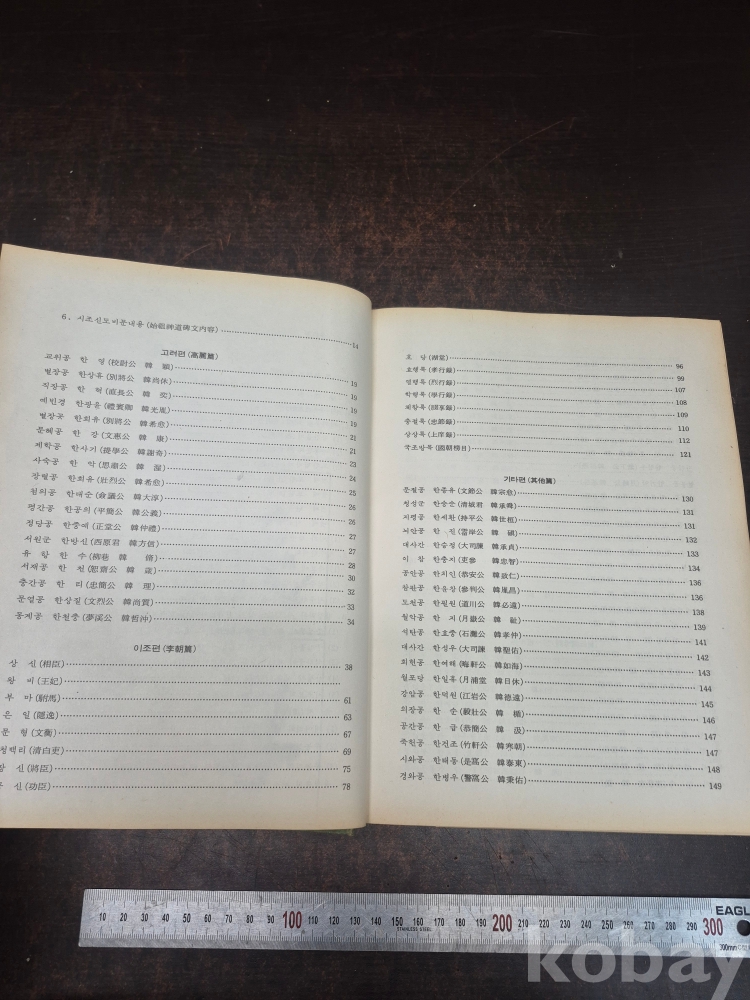 6. 시조신도비문내용 (始祖神道碑文內容) 14
고려편 (高麗篇)
교위공 한 영 (校尉公 韓 穎) 19
별장공 한상휴 (別將公 韓尚休) 19
직장공 한 혁 (直長公 韓 奕) 19
예빈경 한광윤 (禮賓卿 韓光胤) 19
별장공 한희유 (別將公 韓希愈) 21
문혜공 한 강 (文惠公 韓 康) 21
제학공 한사기 (提學公 韓謝奇) 23
사숙공 한 악 (思肅公 韓 渥) 24
장렬공 한희유 (壯烈公 韓希愈) 25
첨의공 한대순 (僉議公 韓大淳) 26
평간공 한공의 (平簡公 韓公義) 26
정당공 한중례 (正堂公 韓仲禮) 27
서원군 한방신 (西原君 韓方信) 27
유항 한 수 (柳巷 韓 脩) 28
서재공 한 천 (恕齋公 韓 蕆) 30
충간공 한 리 (忠簡公 韓 理) 32
문열공 한상질 (文烈公 韓尚質) 33
몽계공 한철충 (夢溪公 韓哲沖) 34
이조편 (李朝篇)
상 신 (相臣) 38
왕 비 (王妃)
부 마 (駙馬) 61
은 일 (隱逸) 63
문 형 (文衡) 67
청백리 (清白吏) 69
장 신 (將臣) 75
공 신 (功臣) 78
호 당 (湖堂) 96
효행록 (孝行錄) 99
열행록 (烈行錄) 107
학행록 (學行錄) 108
피향록 109
충절록 (忠節錄) 110
상상록 (上庠錄) 112
국조방목 (國朝榜目) 121
기타편 (其他篇)
문절공 한종유 (文節公 韓宗愈) 130
청성군 한승순 (清城君 韓承舜) 131
지평공 한세환 (持平公 韓世桓) 131
뇌안공 한 진 (雷岸公 韓 磌) 132
대사간 한승정 (大司諫 韓承貞) 133
이 참 한충지 (吏參 韓忠智) 134
공안공 한치인 (恭安公 韓致仁) 136
참판공 한윤창 (參判公 韓胤昌) 136
도천공 한필원 (道川公 韓必遠) 138
월악공 한 지 (月嶽公 韓 祉) 139
석탄공 한효중 (石灘公 韓孝仲) 141
대사간 한성우 (大司諫 韓聖佑) 142
회헌공 한여해 (晦軒公 韓如海) 143
월포당 한일휴 (月浦堂 韓日休) 144
강암공 한덕원 (江岩公 韓德遠) 145
의장공 한 순 (毅壯公 韓 楯) 146
공간공 한 급 (恭簡公 韓 汲) 147
죽헌공 한건조 (竹軒公 韓寒朝) 147
시와공 한태동 (是窩公 韓泰東) 148
경와공 한병우 (警窩公 韓秉佑) 149
EAGL
10 20 30 40 50 60 70 80 90 100 110 120 130 140 150 160 170 180 190 200 210 220 230 240 250 260 270 280 290 300
STAINLESS STEEL
300mm
kobay